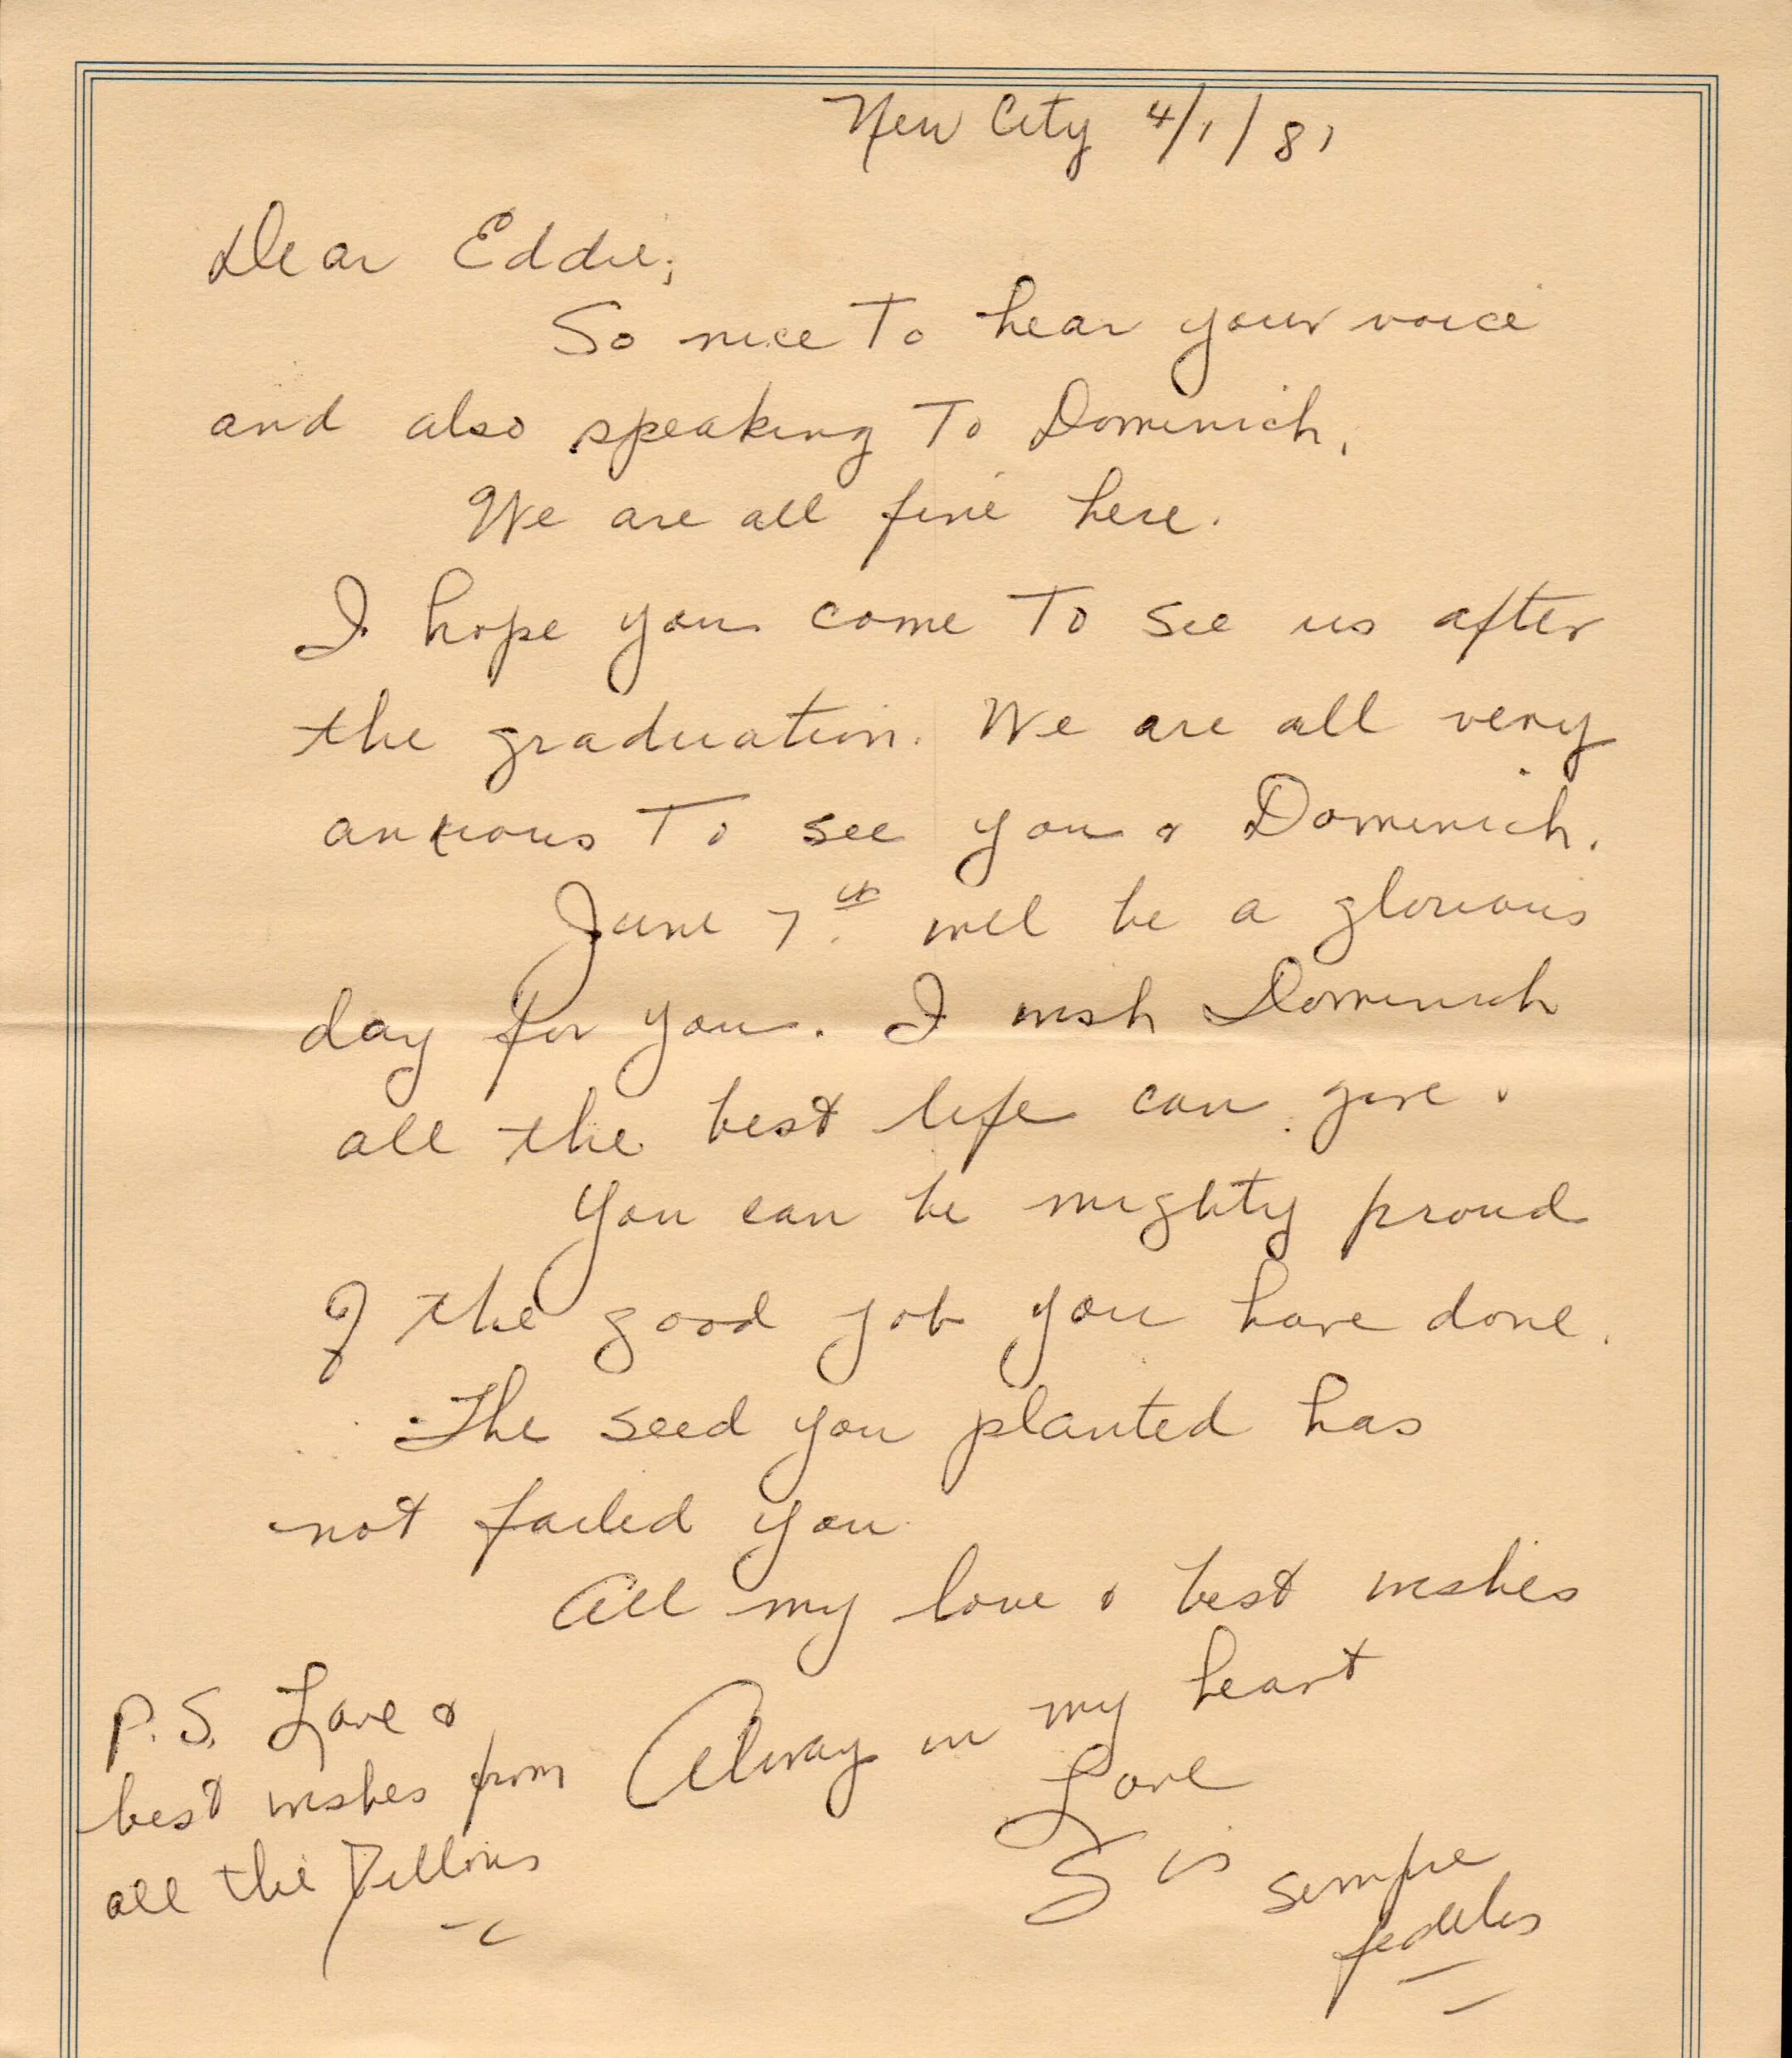 New City 4/1/81
Dear Eddie;
So nice To hear your voice
and also speaking To Dominich.
We are all fine here.
I hope you come To see us after
the graduation. We are all very
anxious To see you & Dominich.
June 7th will be a glorious
day for you. I wish Dominich
all the best life can give.
You can be mighty proud
of the good job you have done.
The seed you planted has
not failed you
All my love & best wishes
Alway in my heart
Love
Sis
sempre
fedeles
P.S. Love &
best wishes from
all the